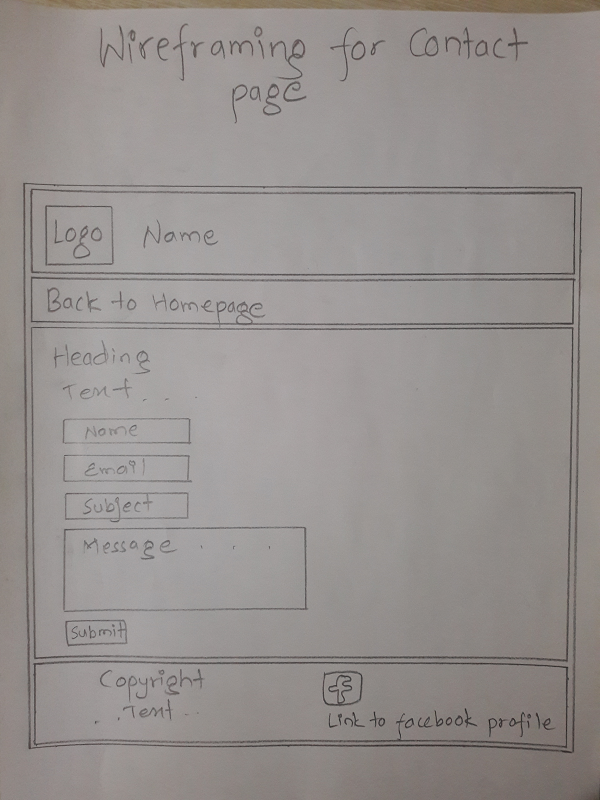 Wireframing for Contact
page
Logo Name
Back to Homepage
Heading
Text . . .
Name
Email
Subject
Message . . .
Submit
Copyright
. . .Text . .
f
Link to facebook profile